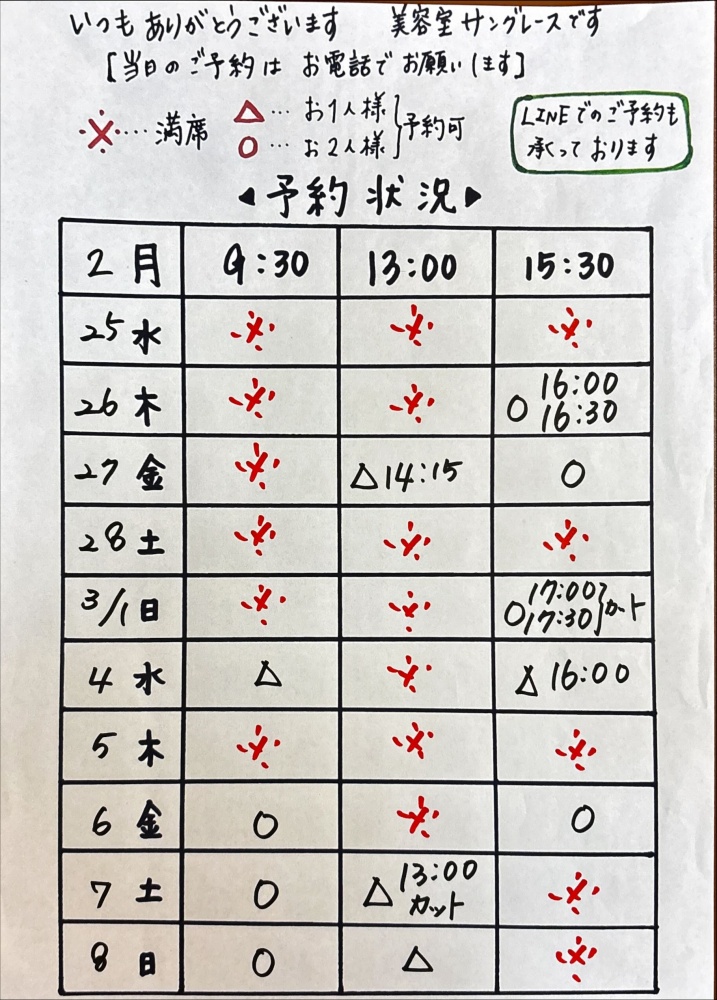 いつもありがとうございます 美容室サングレースです
[当日のご予約は お電話でお願いします]
※…満席 △…お1人様 ○…お2人様 }予約可
LINEでのご予約も
承っております
◀予約状況▶
2月 9:30 13:00 15:30
25 水 ※ ※ ※
26 木 ※ ※ ○ 16:00 16:30
27 金 ※ △14:15 ○
28 土 ※ ※ ※
3/1 日 ※ ※ ○17:00 17:30}カート
4 水 △ ※ △16:00
5 木 ※ ※ ※
6 金 ○ ※ ○
7 土 ○ △13:00 カット ※
8 日 ○ △ ※